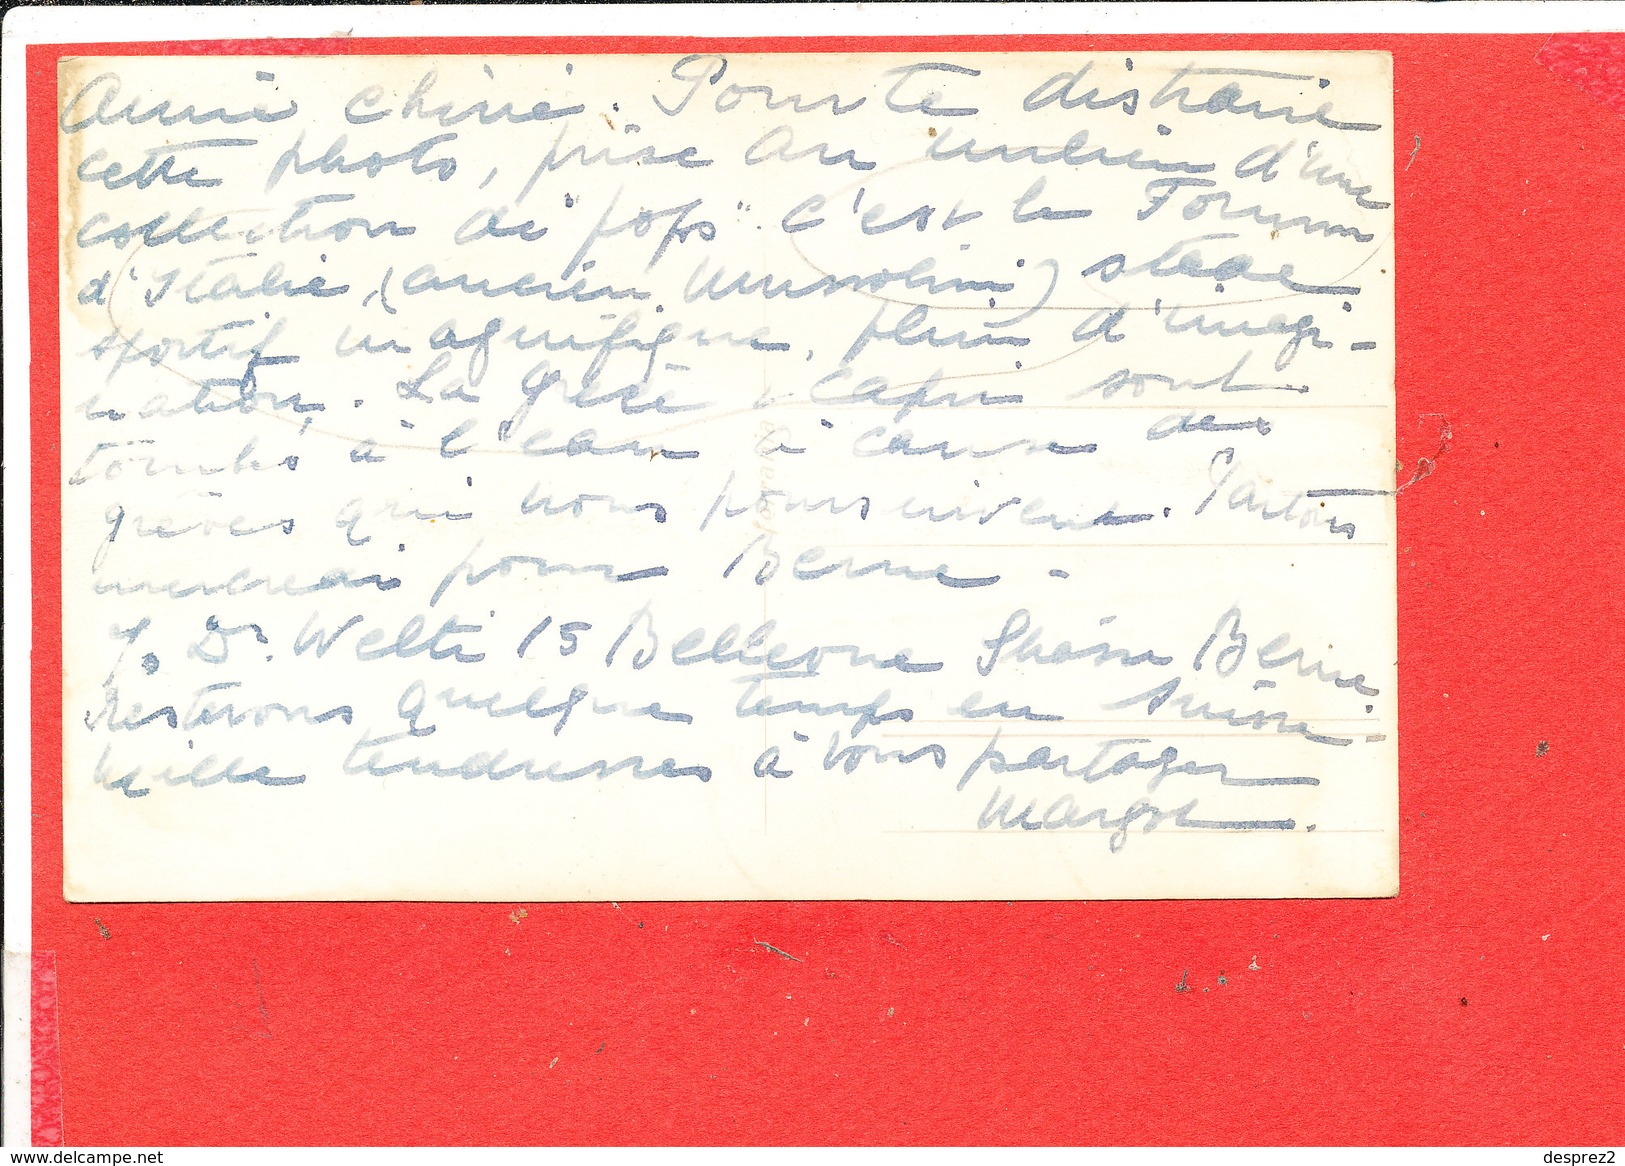 Amie chérie. Pour te distraire
cette photo, prise au milieu d'une
collection de "pops" c'est le Forum
d'Italie, (ancien Mussolini) stade
sportif magnifique, plein d'imagi-
nation. La Grèce, Capri sont
tombés à l'eau à cause des
grèves qui nous poursuivent. Partons
mercredi pour Berne -
Dr. Welti 15 Bellevue Berne
Resterons quelque temps en Suisse -
Mille tendresses à vous partager
Margot.
www.delcampe.net
desprez2